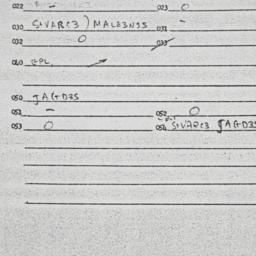 022 - 023 0
030 SIVARC3) MALE3N95 031 -
032 0 033
040 EPL,
050 JAGD35
051 - 052 0
053 0 054 SIVARC3 JAGD35